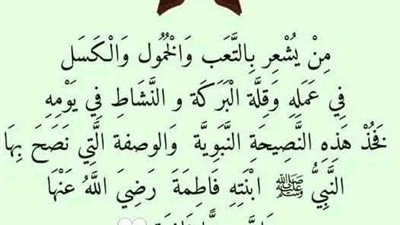 مِنْ يُشْعِر بِالتَّعَب وَالْخُمُول وَالْكَسَل
فِي عَمَلِهِ وَقِلَّة الْبَرَكَة و النَّشَاطِ فِي يَوْمِهِ
فَخُذْ هَذِهِ النَّصِيحَة النَّبَوِيَّة وَالوصفة الَّتِي نَصَحَ بِهَا
النَّبِيُّ ﷺ ابْنَتِهِ فَاطِمَةَ رَضِيَ اللَّهُ عَنْهَا